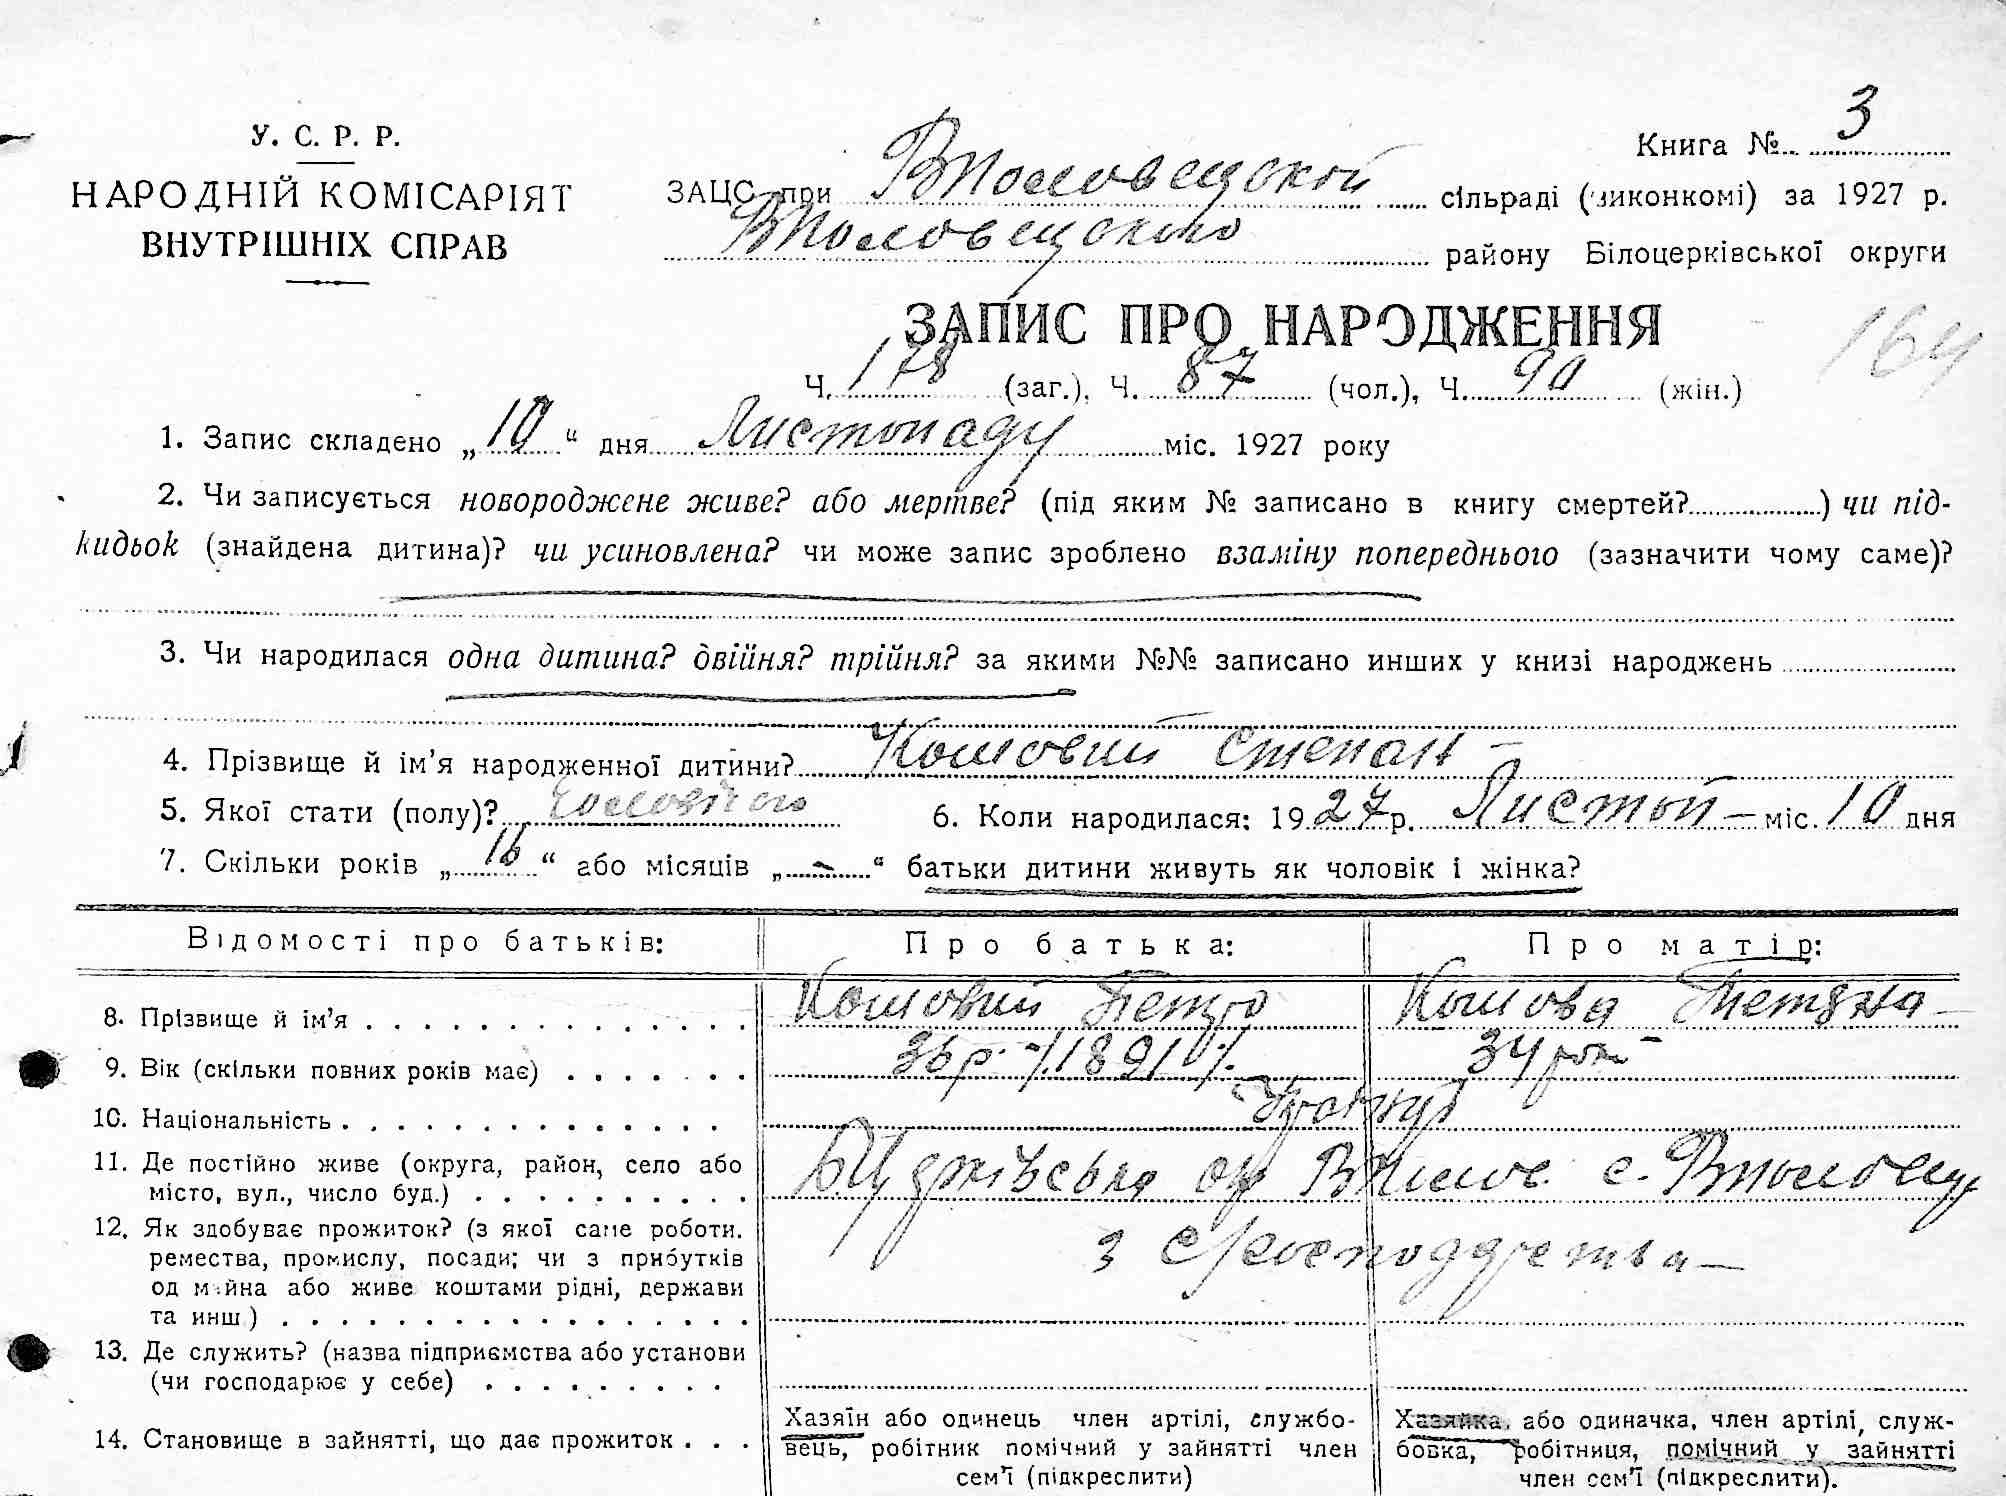 У. С. Р. Р.
НАРОДНІЙ КОМІСАРІЯТ
ВНУТРІШНІХ СПРАВ
Книга № 3
ЗАЦС при Вполовецской сільраді (виконкомі) за 1927 р.
Вполовецского району Білоцерківської округи
ЗАПИС ПРО НАРОДЖЕННЯ
164
Ч. 178 (заг.), Ч. 87 (чол.), Ч. 90 (жін.)
1. Запис складено „10“ дня Листопаду міс. 1927 року
2. Чи записується новороджене живе? або мертве? (під яким № записано в книгу смертей? ) чи під-
кидьок (знайдена дитина)? чи усиновлена? чи може запис зроблено взаміну попереднього (зазначити чому саме)?
3. Чи народилася одна дитина? двійня? трійня? за якими №№ записано инших у книзі народжень
4. Прізвище й ім’я народженної дитини? Кошовий Степан –
5. Якої стати (полу)? 6. Коли народилася: 1927 р. Листоп – міс. 10 дня
7. Скільки років „16“ або місяців „–“ батьки дитини живуть як чоловік і жінка?
Відомості про батьків: Про батька: Про матір:
8. Прізвище й ім’я Кошовий Петро Кошова Тетяна –
9. Вік (скільки повних років має) 36 р. /1891/ 34 рок –
10. Національність
11. Де постійно живе (округа, район, село або
місто, вул., число буд.) с.
12. Як здобуває прожиток? (з якої саме роботи,
ремества, промислу, посади; чи з прибутків
од майна або живе коштами рідні, держави
та инш.) з
13. Де служить? (назва підприємства або установи
(чи господарює у себе)
14. Становище в зайнятті, що дає прожиток
Хазяїн або одинець член артілі, службо-
вець, робітник помічний у зайнятті член
сем’ї (підкреслити)
Хазяйка, або одиначка, член артілі, служ-
бовка, робітниця, помічний у зайнятті
член сем’ї (підкреслити).